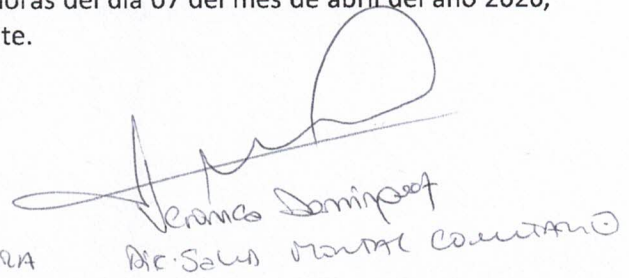 horas del día 07 del mes de abril del año 2020,
te.
Veronica Dominguez
RA DIR. SALUD MENTAL COMUNITARIO